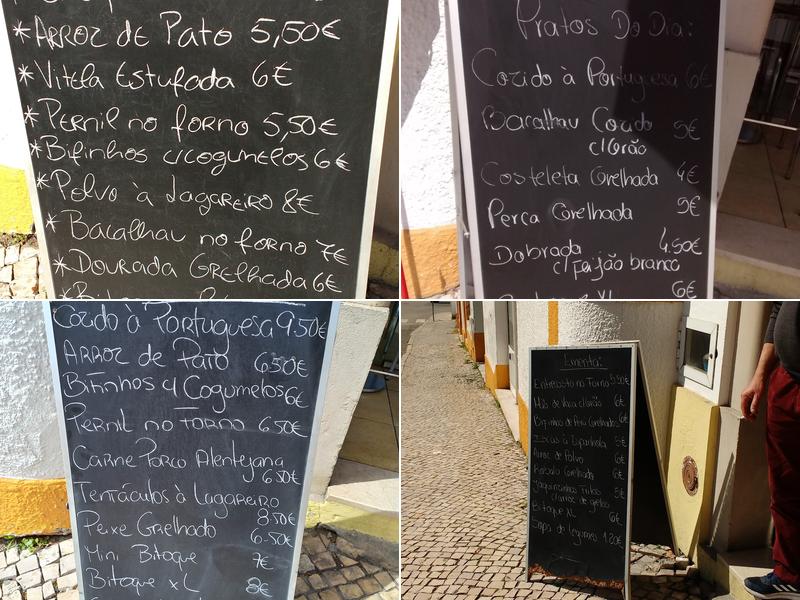 *Arroz de Pato 5,50€
*Vitela Estufada 6€
*Pernil no forno 5,50€
*Bifinhos c/cogumelos 6€
*Polvo à Lagareiro 8€
*Bacalhau no forno 7€
*Dourada Grelhada 6€
Pratos Do Dia:
Cozido à Portuguesa 6€
Bacalhau Cozido 5€
c/Grão
Costeleta Grelhada 4€
Perca Grelhada 5€
Dobrada 4.50€
c/Feijão branco
XL 6€
Cozido à Portuguesa 9.50€
Arroz de Pato 6.50€
Bifinhos c/ Cogumelos 6€
Pernil no forno 6.50€
Carne Porco Alentejana
6.50€
Tentáculos à Lagareiro
8.50€
Peixe Grelhado 6.50€
Mini Bitoque 7€
Bitoque XL 8€
Ementa:
Entrecosto no Forno 5.50€
Mão de Vaca c/Grão 6€
Grelhados 6€
Iscas à Espanhola 5€
Arroz de Polvo 6€
Grelhada 6€
Jaquinzinhos Fritos 5€
c/arroz de grelos
Bitoque XL 6€
Sopa de legumes 1.20€